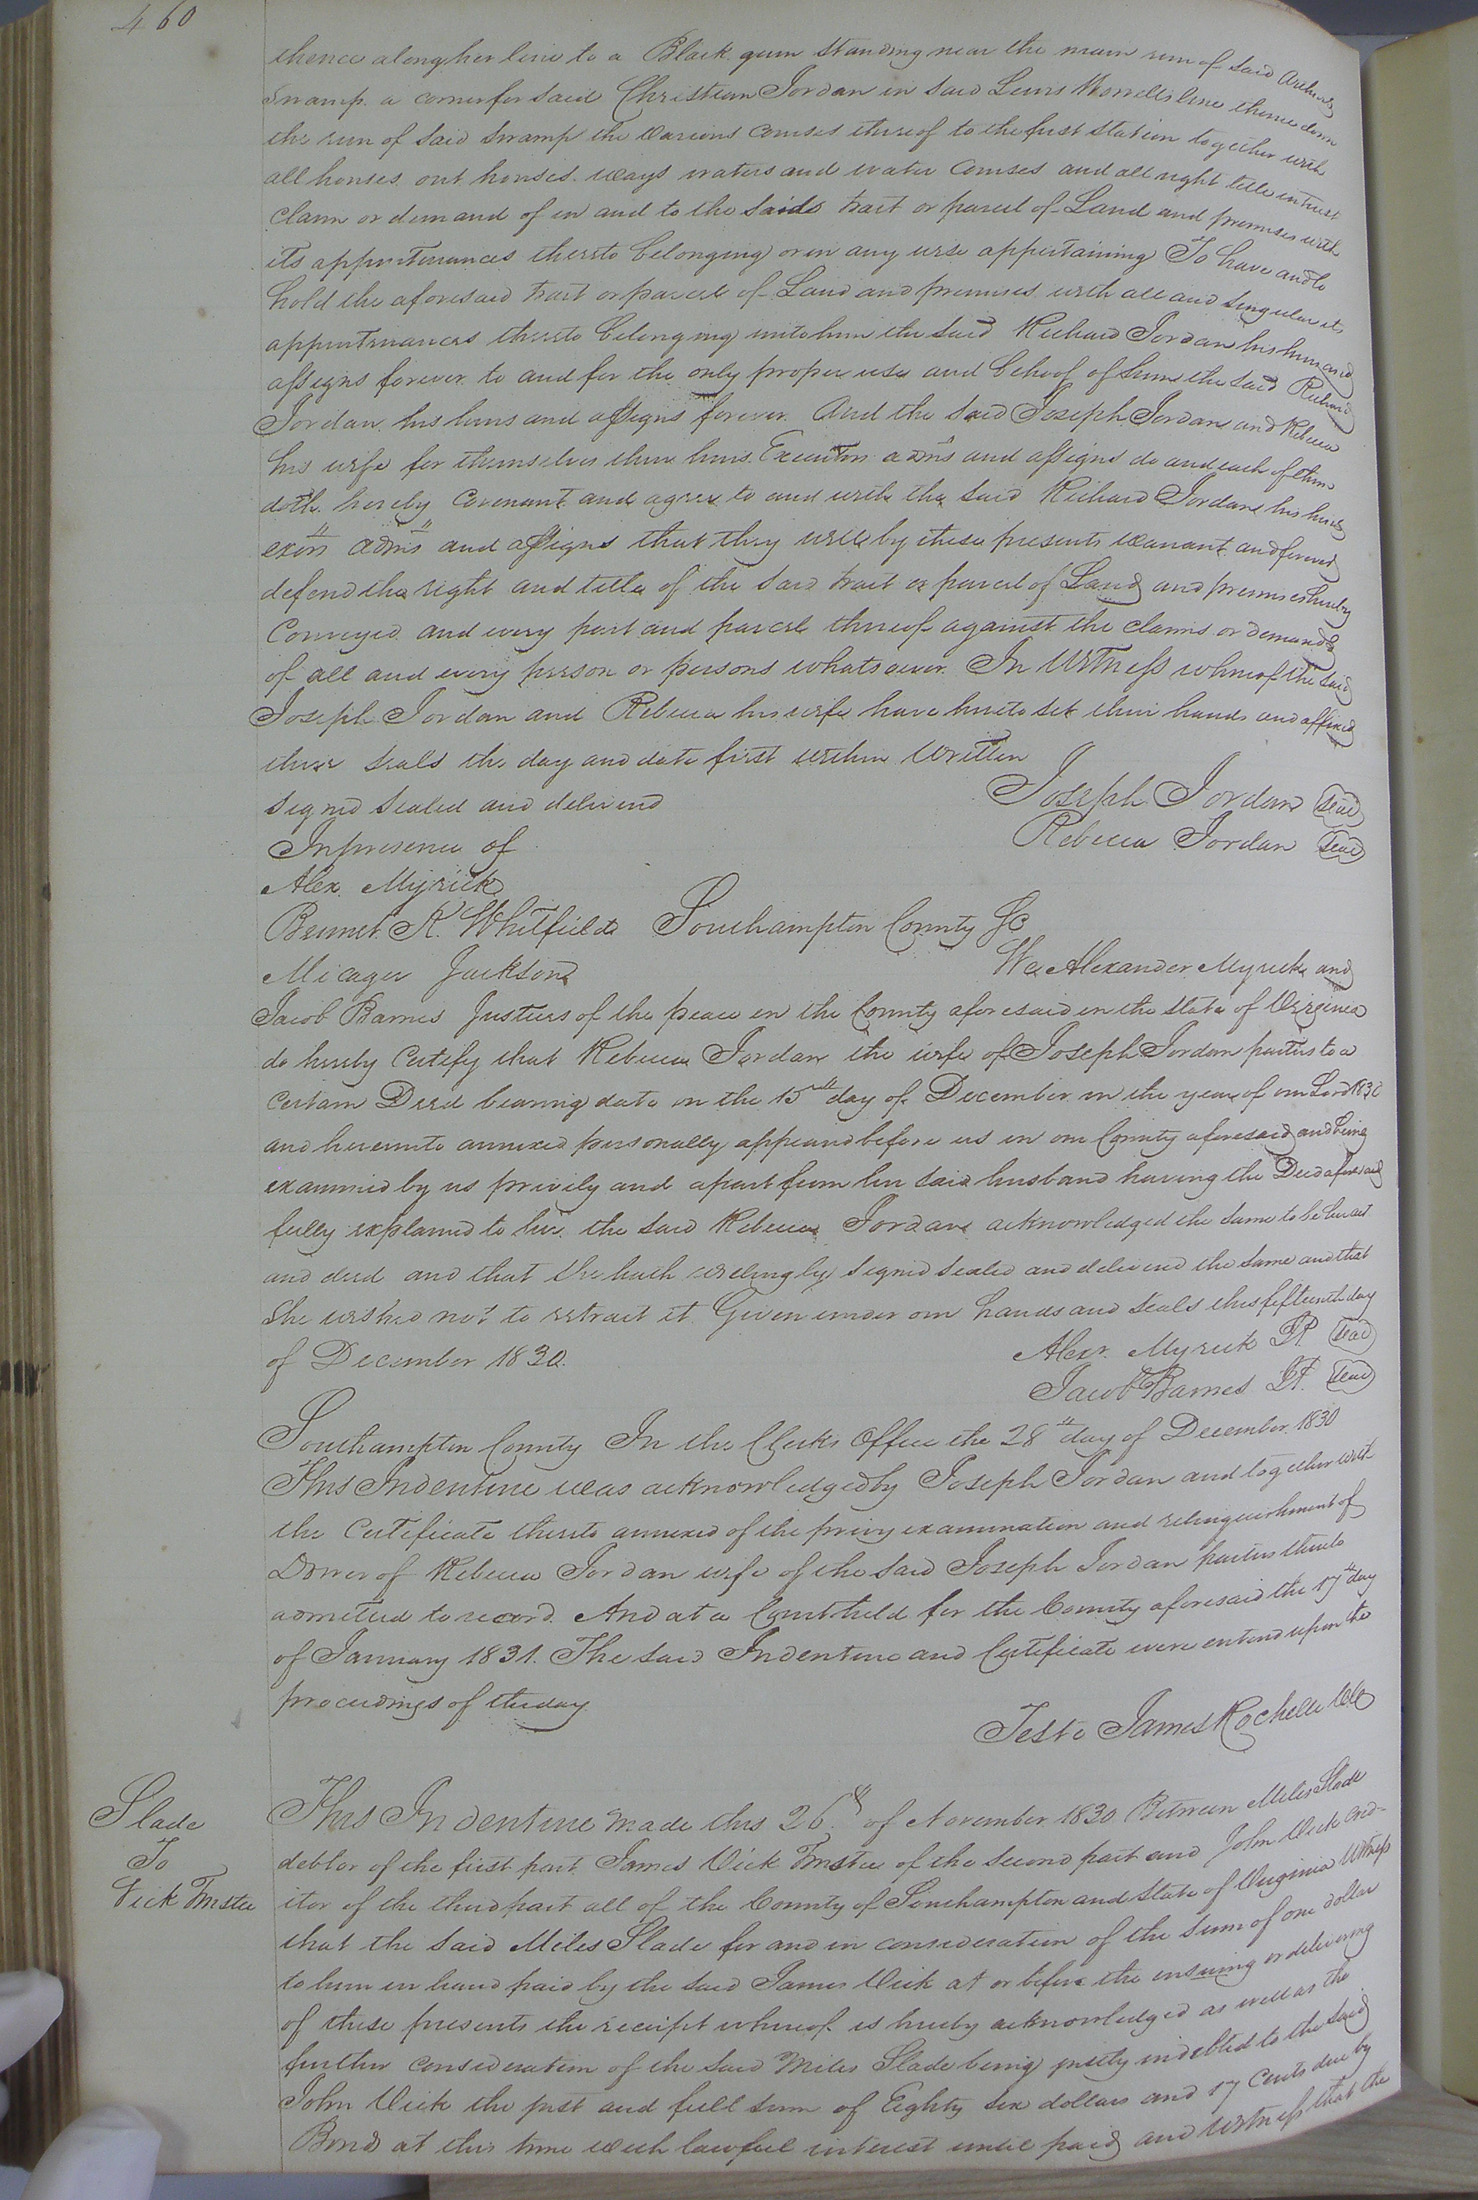 460
thence along her line to a Black gum standing near the main run of said
Swamp a corner for said Christian Jordan in said Lewis Worrells line thence down
the run of said Swamp the various courses thereof to the first station together with
all houses out houses ways waters and water courses and all right title intrest
claim or demand of in and to the said tract or parcel of Land and premises with
its appurtenances thereto belonging or in any wise appertaining To have and to
hold the aforesaid tract or parcel of Land and premises with all and singular its
appurtenances thereto belonging unto him the said Richard Jordan his heirs and
assigns forever to and for the only proper use and behoof of him the said Richard
Jordan his heirs and assigns forever. And the said Joseph Jordan and Rebecca
his wife for themselves their heirs Executors adms and assigns do and each of them
doth hereby Covenant and agree to and with the said Richard Jordan his heirs
exors adms and assigns that they will by these presents warrant and forever
defend the right and title of the said tract or parcel of Land and premises hereby
Conveyed and every part and parcel thereof against the claims or demands
of all and every person or persons whatsoever. In Witness whereof the said
Joseph Jordan and Rebecca his wife have hereto set their hands and affixed
their seals the day and date first within written
Signed Sealed and delivered
Joseph Jordan Seal
Inpresence of
Rebecca Jordan Seal
Alex. Myrick
Bennet K. Whitfield Southampton County Sc
Micager Jackson
We Alexander Myrick and
Jacob Barnes Justices of the peace in the County aforesaid in the State of Virginia
do hereby Certify that Rebecca Jordan the wife of Joseph Jordan parties to a
certain Deed bearing date on the 15th day of December in the year of our Lord 1830
and hereunto annexed personally appeared before us in our County aforesaid and being
examined by us privily and apart from her said husband having the Deed aforesaid
fully explained to her the said Rebecca Jordan acknowledged the same to be her act
and deed and that she hath willingly signed sealed and delivered the same and that
She wished not to retract it Given under our hands and seals this fifteenth day
of December 1830.
Alexr. Myrick JP Seal
Jacob Barnes JP. Seal
Southampton County In the Clerks Office the 28th day of December 1830
This Indenture was acknowledged by Joseph Jordan and together with
the Certificate thereto annexed of the privy examination and relinquishment of
Dower of Rebecca Jordan wife of the said Joseph Jordan parties thereto
admitted to record. And at a Court held for the County aforesaid the 17th day
of January 1831. The said Indenture and Certificate were entered upon the
proceedings of the day
Teste James Rochelle Clk
Slade
To
Vick Trustee
This Indenture made this 26th of November 1830 Between Miles Slade
debtor of the first part James Vick Trustee of the second part and John Vick cred-
itor of the third part all of the County of Southampton and State of Virginia Witness
that the said Miles Slade for and in consideration of the sum of one dollar
to him in hand paid by the said James Vick at or before the ensuing or delivering
of these presents the receipt whereof is hereby acknowledged as well as the
further consideration of the said Miles Slade being justly indebted to the said
John Vick the just and full sum of Eighty six dollars and 17 Cents due by
Bond at this time with lawful interest until paid and Witness that the